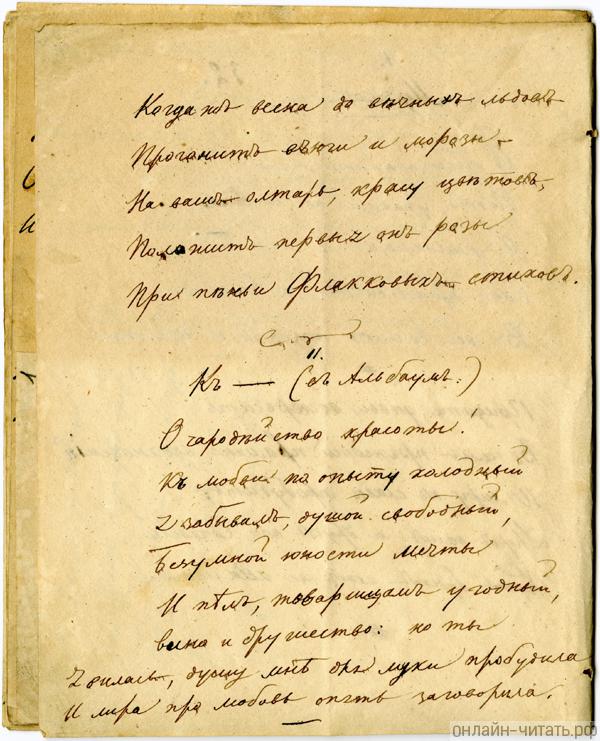 Когда жъ весна до вѣчныхъ льдовъ
Прогонитъ вьюги и морозы —
На вашъ олтарь, красу цвѣтовъ,
Положитъ первыя онъ розы
При пѣньи Флакковыхъ стиховъ.
11.
Къ — (въ Альбаумъ.)
Очаровѣйство красоты.
Къ любви по опыту холодный
Я забывалъ, душой свободный,
Безумной юности мечты
И пѣлъ, товарищамъ угодный,
Вина и дружество: но ты
Явилась, душу мнѣ для муки пробудила
И лира про любовь опять заговорила.
онлайн-читать.рф